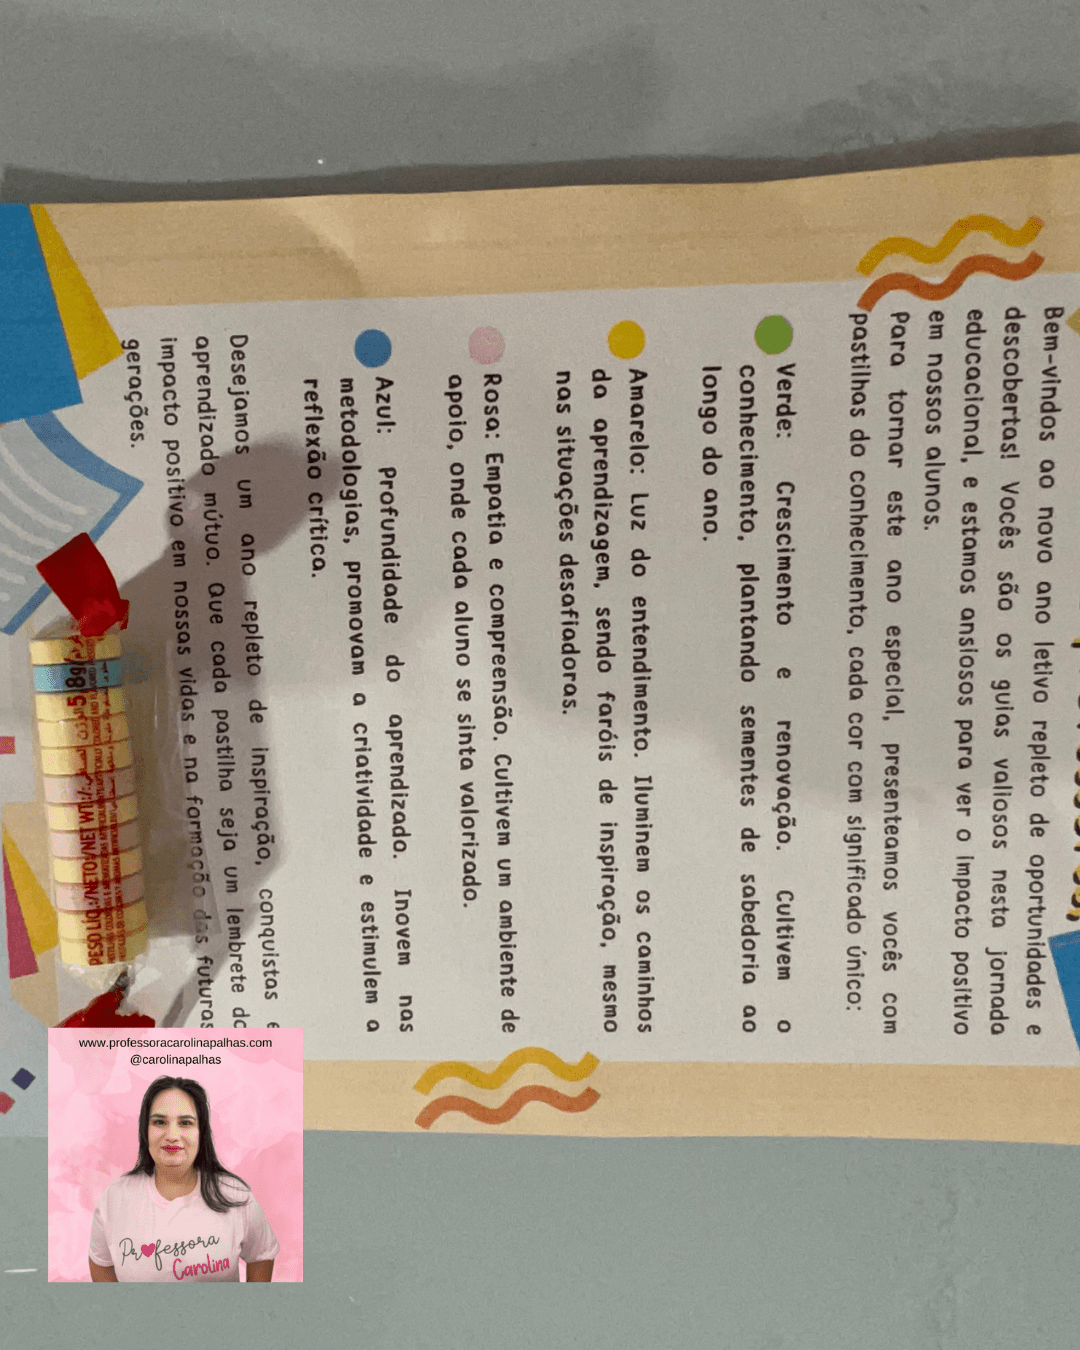 Bem-vindos ao novo ano letivo repleto de oportunidades e
descobertas! Vocês são os guias valiosos nesta jornada
educacional, e estamos ansiosos para ver o impacto positivo
em nossos alunos.
Para tornar este ano especial, presenteamos vocês com
pastilhas do conhecimento, cada cor com significado único:
Verde: Crescimento e renovação. Cultivem o
conhecimento, plantando sementes de sabedoria ao
longo do ano.
Amarelo: Luz do entendimento. Iluminem os caminhos
da aprendizagem, sendo faróis de inspiração, mesmo
nas situações desafiadoras.
Rosa: Empatia e compreensão. Cultivem um ambiente de
apoio, onde cada aluno se sinta valorizado.
Azul: Profundidade do aprendizado. Inovem nas
metodologias, promovam a criatividade e estimulem a
reflexão crítica.
Desejamos um ano repleto de inspiração, conquistas e
aprendizado mútuo. Que cada pastilha seja um lembrete do
impacto positivo em nossas vidas e na formação das futuras
gerações.
PESO LÍQ./NETO/NET WT.: 5,8g
www.professoracarolinapalhas.com
@carolinapalhas
Professora
Carolina